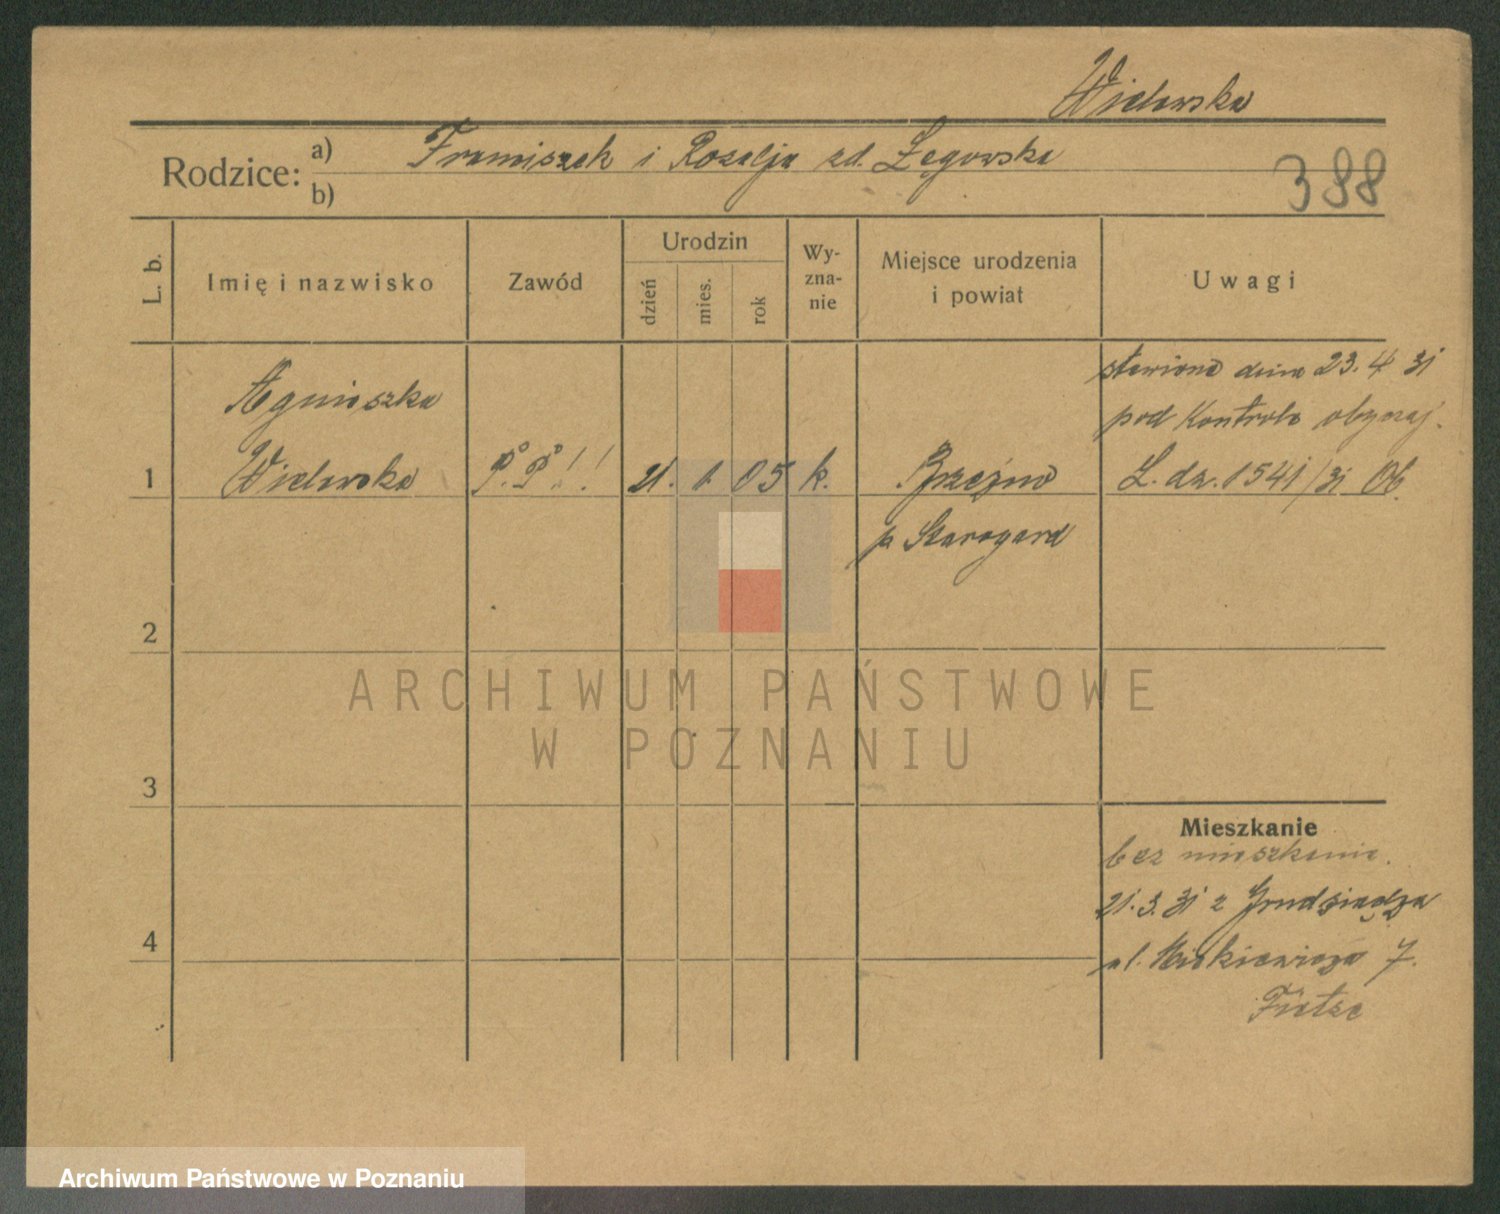 Wielewska
Rodzice: a) Franciszek i Rozalja zd. Łęgowska
b)
388
L. b.
Imię i nazwisko
Zawód
Urodzin
dzień
mies.
rok
Wy-
zna-
nie
Miejsce urodzenia
i powiat
Uwagi
Agnieszka
1 Wielewska
P.P.!!
21. 1. 05
k.
Brzeźno
p Starogard
stawiona dnia 23. 4 31
pod Kontrolę obyczaj.
L. dz. 1541/31 Ob.
2
3
4
Mieszkanie
bez mieszkania.
21.3.31 z Grudziądza
ul. Mickiewicza 7.
ARCHIWUM PAŃSTWOWE
W POZNANIU
Archiwum Państwowe w Poznaniu